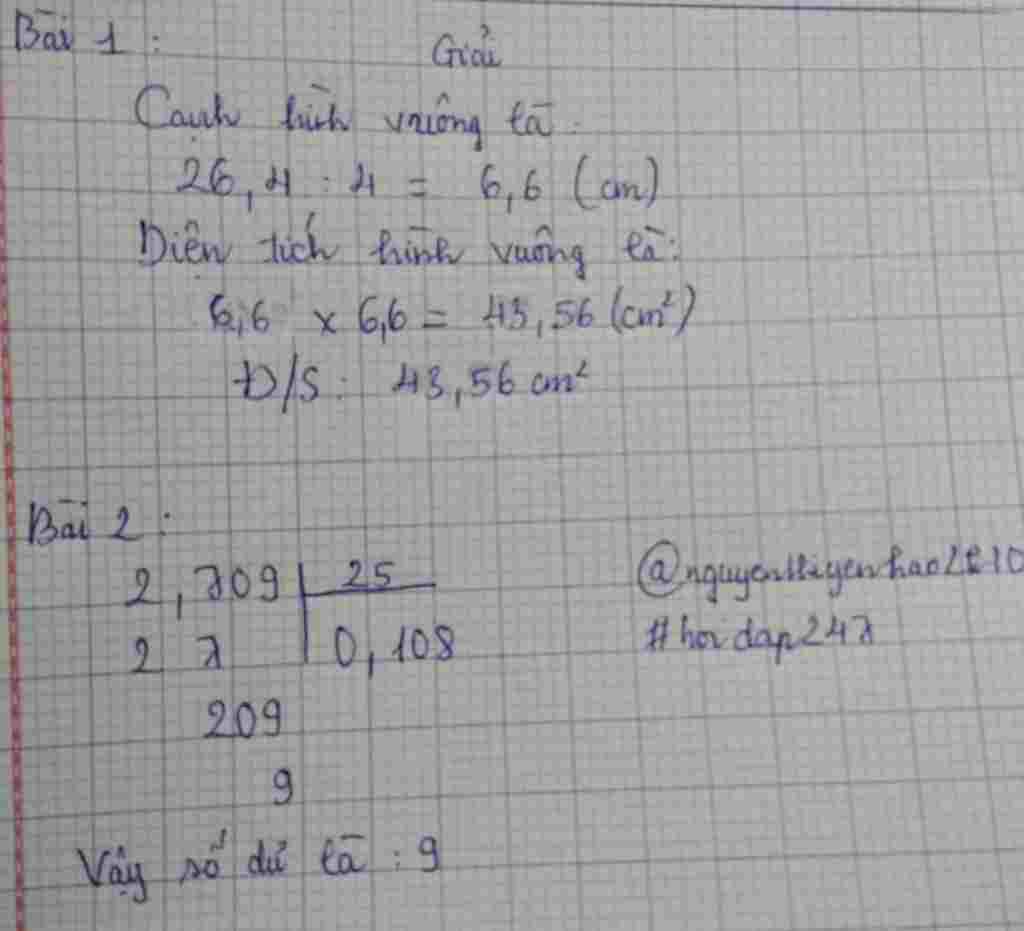 Bài 1 :
Giải
Cạnh hình vuông là :
26,4 : 4 = 6,6 (cm)
Diện tích hình vuông là :
6,6 x 6,6 = 43,56 (cm²)
Đ/S : 43,56 cm²
Bài 2 :
2,709 25
2 7 0,108
209
9
#hoidap247
Vậy số dư là : 9